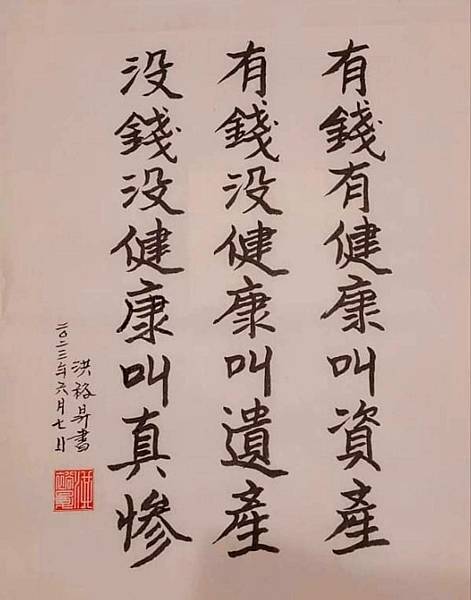 有錢有健康叫資產
有錢没健康叫遺產
没錢没健康叫真慘
洪裕昇書
二〇二三年六月七日